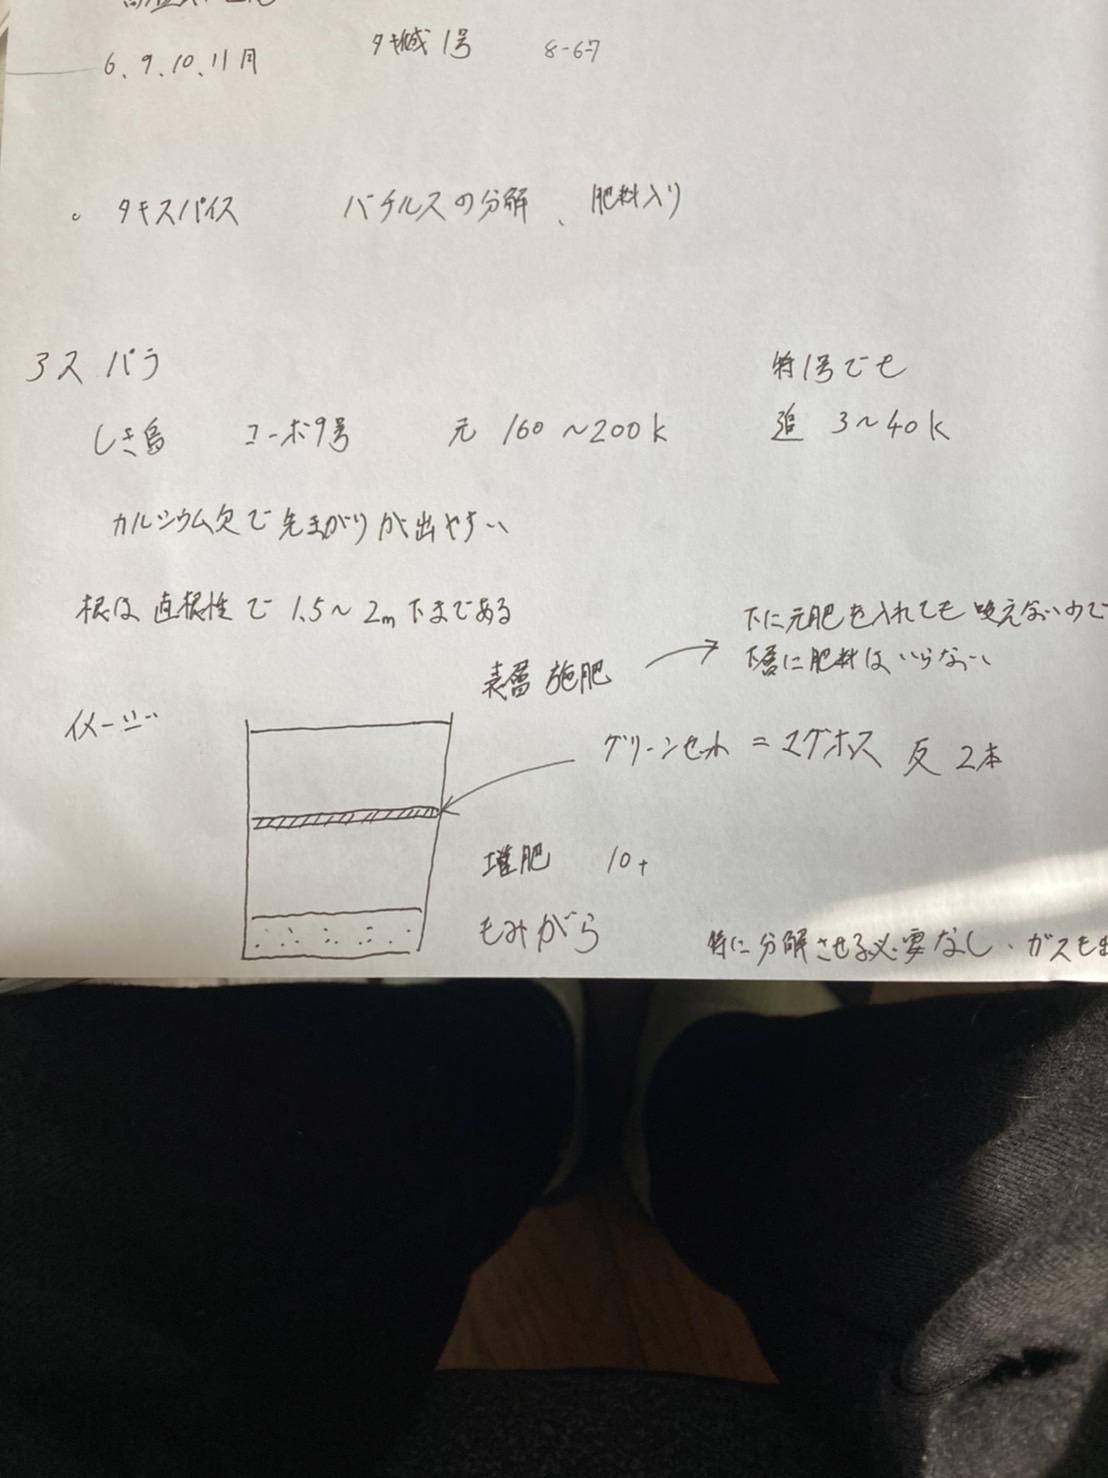 6、9、10、11月
1号 8-6-7
。タキスパイス バチルスの分解、肥料入り
アスパラ
特1号でも
しき島 コーボ9号 元 160〜200k 追 3〜40k
カルシウム欠で先まがりが出やすい
根は直根性で 1.5〜2m下まである
下に元肥を入れても吸えないので
下層に肥料はいらない
表層施肥
イメージ
グリーンセット = マグホス 反 2本
堆肥 10t
もみがら
特に分解させる必要なし、ガスも